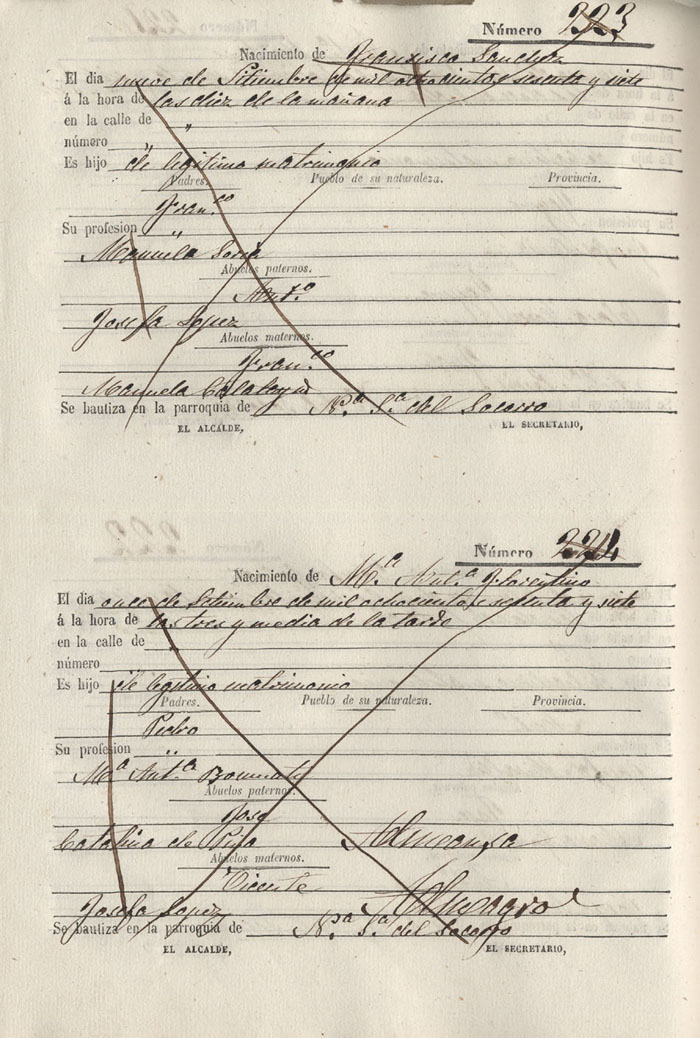 Número 223
Nacimiento de Francisca Sanchez
El dia nueve de Setimbre de mil ochocientos sesenta y siete
á la hora de las diez de la mañana
en la calle de "
número "
Es hijo de legitimo matrimonio
Padres. Pueblo de su naturaleza. Provincia.
Fran.co
Su profesion "
Manuela Soria
Abuelos paternos.
Ant.o
Josefa Lopez
Abuelos maternos.
Fran.co
Manuela Calatayud
Se bautiza en la parroquia de N.a S.a del Socorro
EL ALCALDE, EL SECRETARIO,
Número 224
Nacimiento de M.a Ant.a Florentino
El dia once de Setimbre de mil ochocientos sesenta y siete
á la hora de las tres y media de la tarde
en la calle de "
número
Es hijo de legitimo matrimonio
Padres. Pueblo de su naturaleza. Provincia.
Pedro
Su profesion "
M.a Ant.a
Abuelos paternos.
José
Catalina de Almansa
Abuelos maternos.
Vicente Almagro
Josefa Lopez
Se bautiza en la parroquia de N.a S.a del Socorro
EL ALCALDE, EL SECRETARIO,